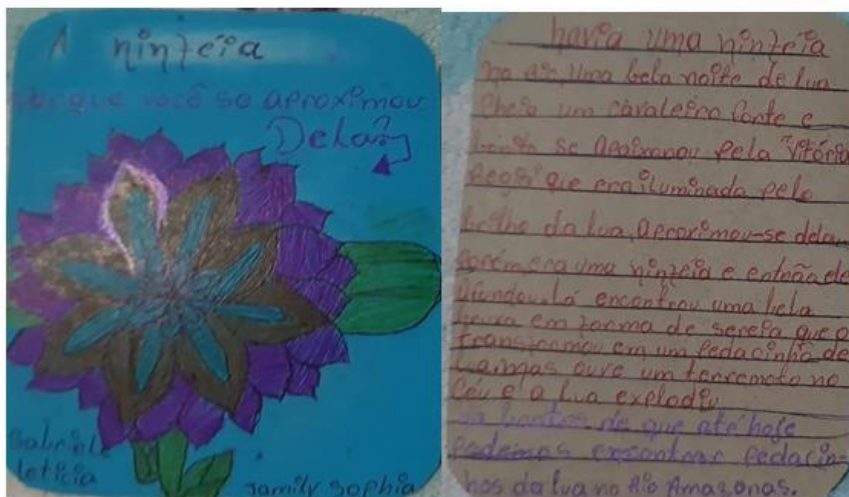 A ninfeia
Porque você se aproximou
Dela?
Gabriele
leticia
Jamily Sophia
havia uma ninfeia
no Rio, uma bela noite de lua
cheia um cavaleiro forte e
lindo se apaixonou pela "Vitória
Regia" que era iluminada pelo
brilho da lua, aproximou-se dela
porém era uma ninfeia e então ele
afundou. lá encontrou uma bela
em forma de sereia que o
transformou em um pedacinho de
lua, mas ouve um terremoto no
céu e a lua explodiu
de que até hoje
podemos encontrar pedacin-
hos da lua no Rio Amazonas.